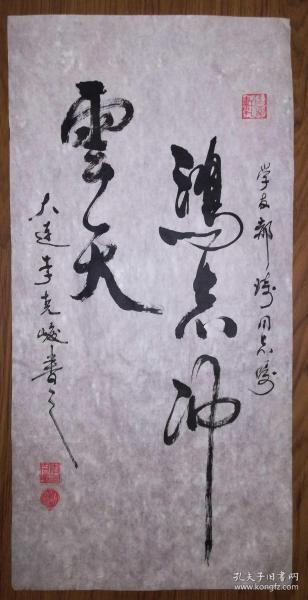 学友郝琦同志嘱
鸿志冲
云天
大连李克峻书之
孔夫子旧书网